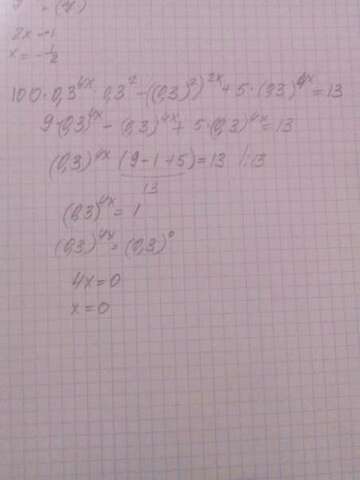 2x=-1
x=-1/2
100·0,3^4x·0,3^2-((0,3)^2)^2x+5·(0,3)^4x=13
9·(0,3)^4x-(0,3)^4x+5·(0,3)^4x=13
(0,3)^4x (9-1+5)=13 /:13
13
(0,3)^4x=1
(0,3)^4x=(0,3)^0
4x=0
x=0